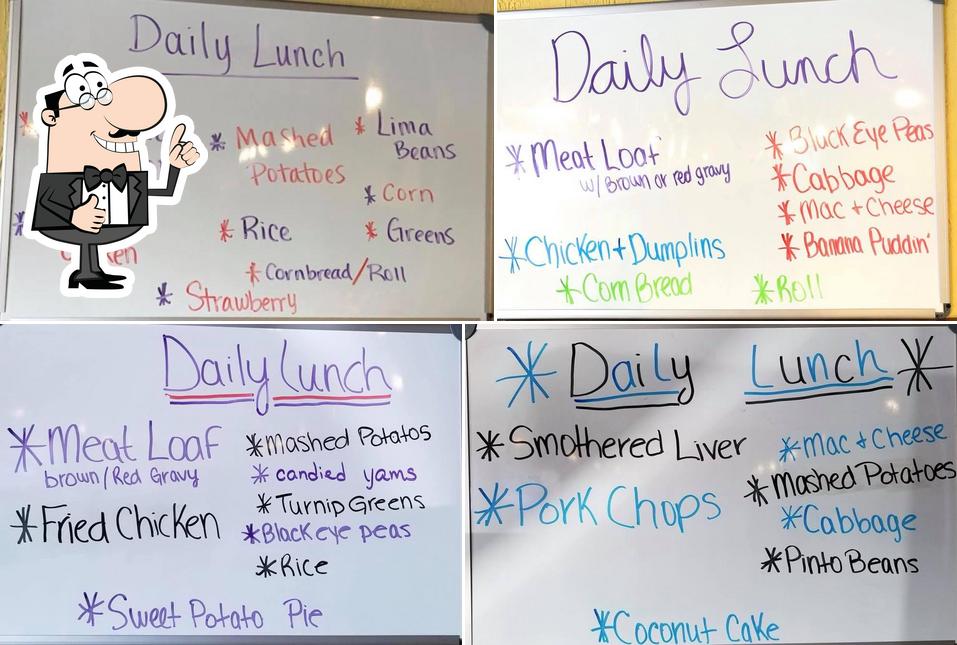 Daily Lunch
* Mashed
Potatoes
* Lima
Beans
* Corn
* Rice
* Greens
* Cornbread/Roll
* Strawberry
Daily Lunch
* Meat Loaf
w/ Brown or red gravy
* Chicken + Dumplins
* Corn Bread
* Black Eye Peas
* Cabbage
* Mac + Cheese
* Banana Puddin'
* Roll
Daily Lunch
* Meat Loaf
brown/Red Gravy
* Fried Chicken
* Mashed Potatos
* candied yams
* Turnip Greens
* Black eye peas
* Rice
* Sweet Potato Pie
* Daily Lunch *
* Smothered Liver
* Pork Chops
* Mac + Cheese
* Mashed Potatoes
* Cabbage
* Pinto Beans
* Coconut Cake